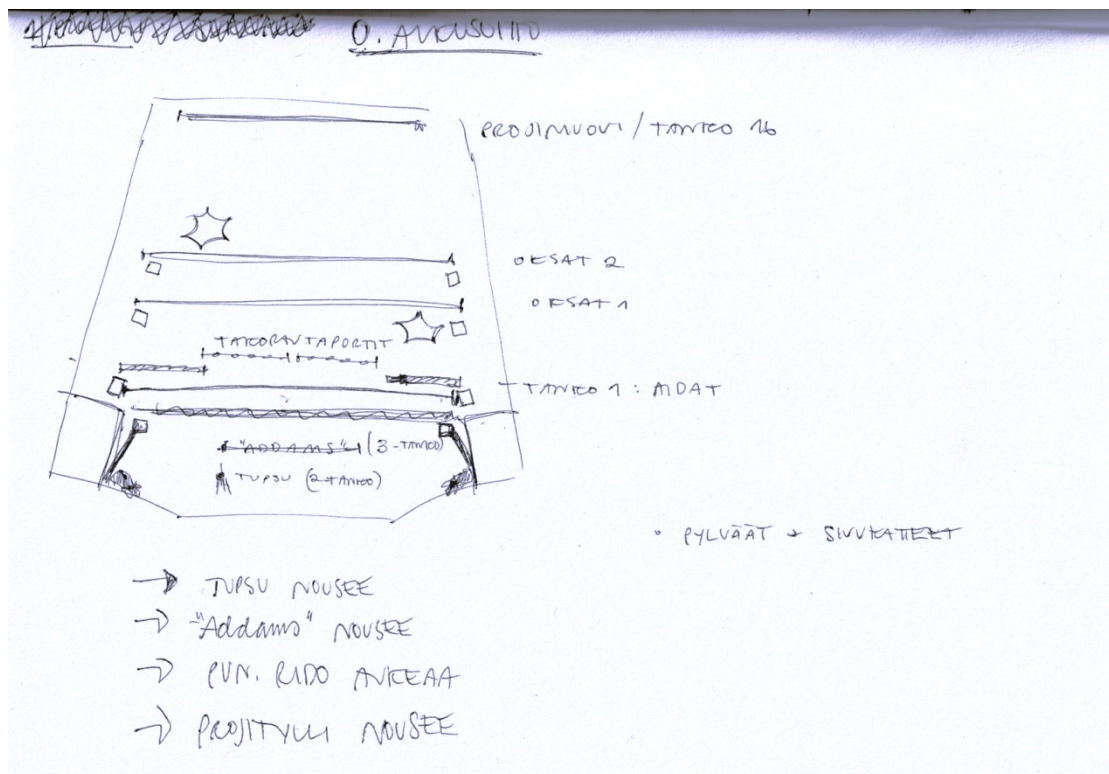 0. ALKUSOITTO
PROJIMUOVI / TANKO 16
OKSAT 2
OKSAT 1
TAKORAUTAPORTIT
TANKO 1 : AIDAT
"ADDAMS" (3-TANKO)
TUPSU (2-TANKO)
• PYLVÄÄT + SIVUKATTEET
→ TUPSU NOUSEE
→ "Addams" NOUSEE
→ PUN. RIDO AUKEAA
→ PROJITYLLI NOUSEE